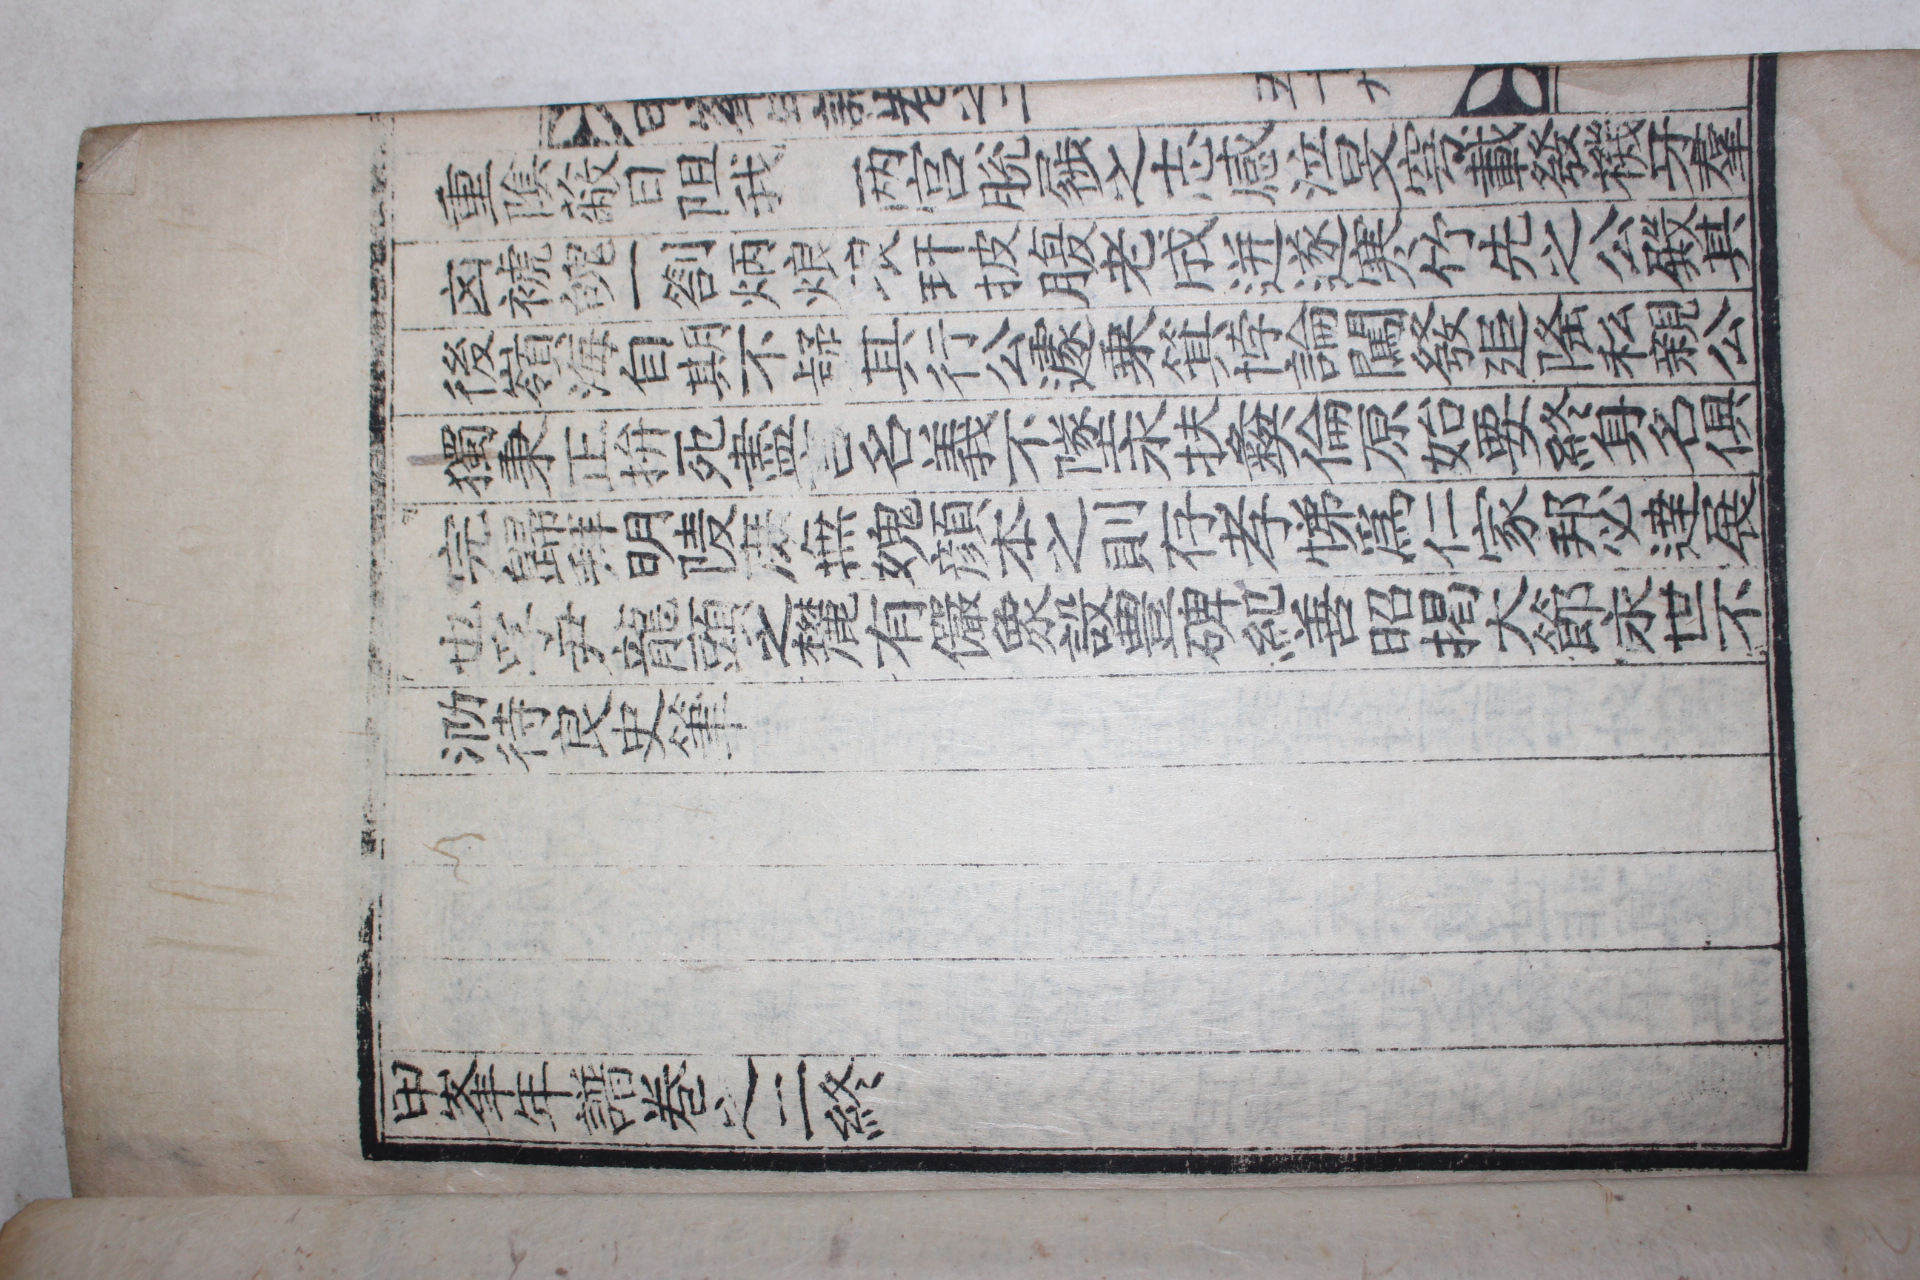 重陰蔽日阻我　兩宮脫屣之志感泣旻穹載發禨牙羣
凶褫魄一劄炳烺琅玕披腹老成迸遂寒竹先之公殿其
後嶺海自期不疑其行公遽乘箕悖論闖發追隆私親公
獨秉正拚死盡言名義不墜永扶彝倫原始要終身名俱
完歸拜明陵庶無媿顔本之則存孝悌爲仁家邦必達展
也孚尹龍頭之麓有儼象設豊碑紀善昭揭大節永世不
泐待良史筆
甲峯年譜卷之二終
甲峯年譜卷之二　五十九